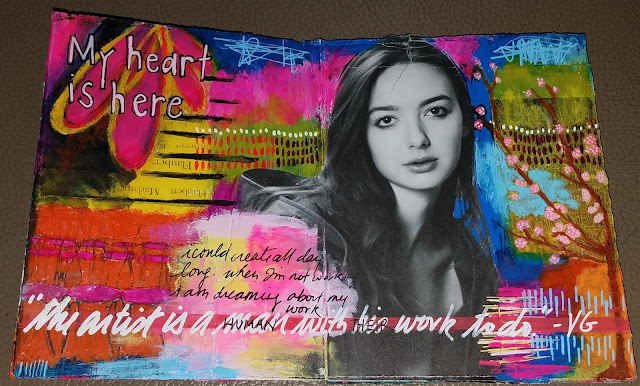 My heart
is here
i could create all day
long. when I'm not working
i am dreaming about my
work
"the artist is a man with his work to do" -VG
HUMAN HER